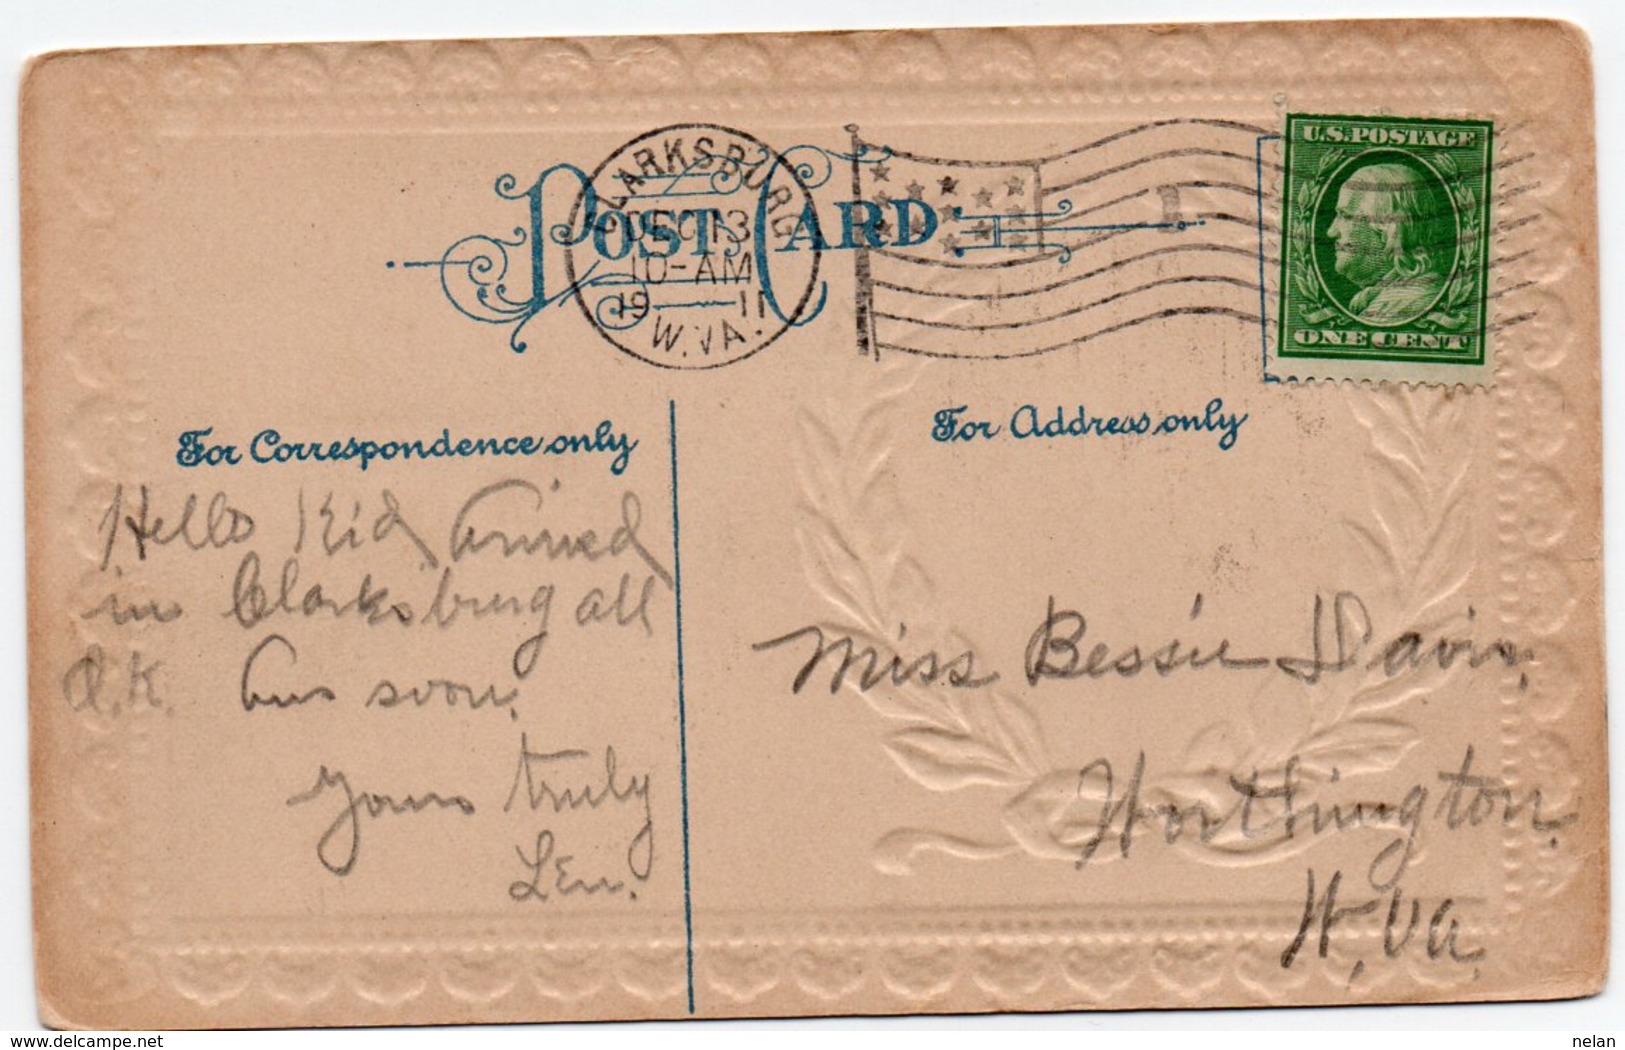 CLARKSBURG
DEC 13
10-AM
19 11
W.VA.
POST CARD
U.S. POSTAGE
ONE CENT
For Correspondence only
For Address only
Hello Kid, Arrived
in Clarksburg all
O.K. Ans soon.
Yours truly
Len.
Miss Bessie Davis,
Worthington.
W. Va.
© delcampe.net
nelan